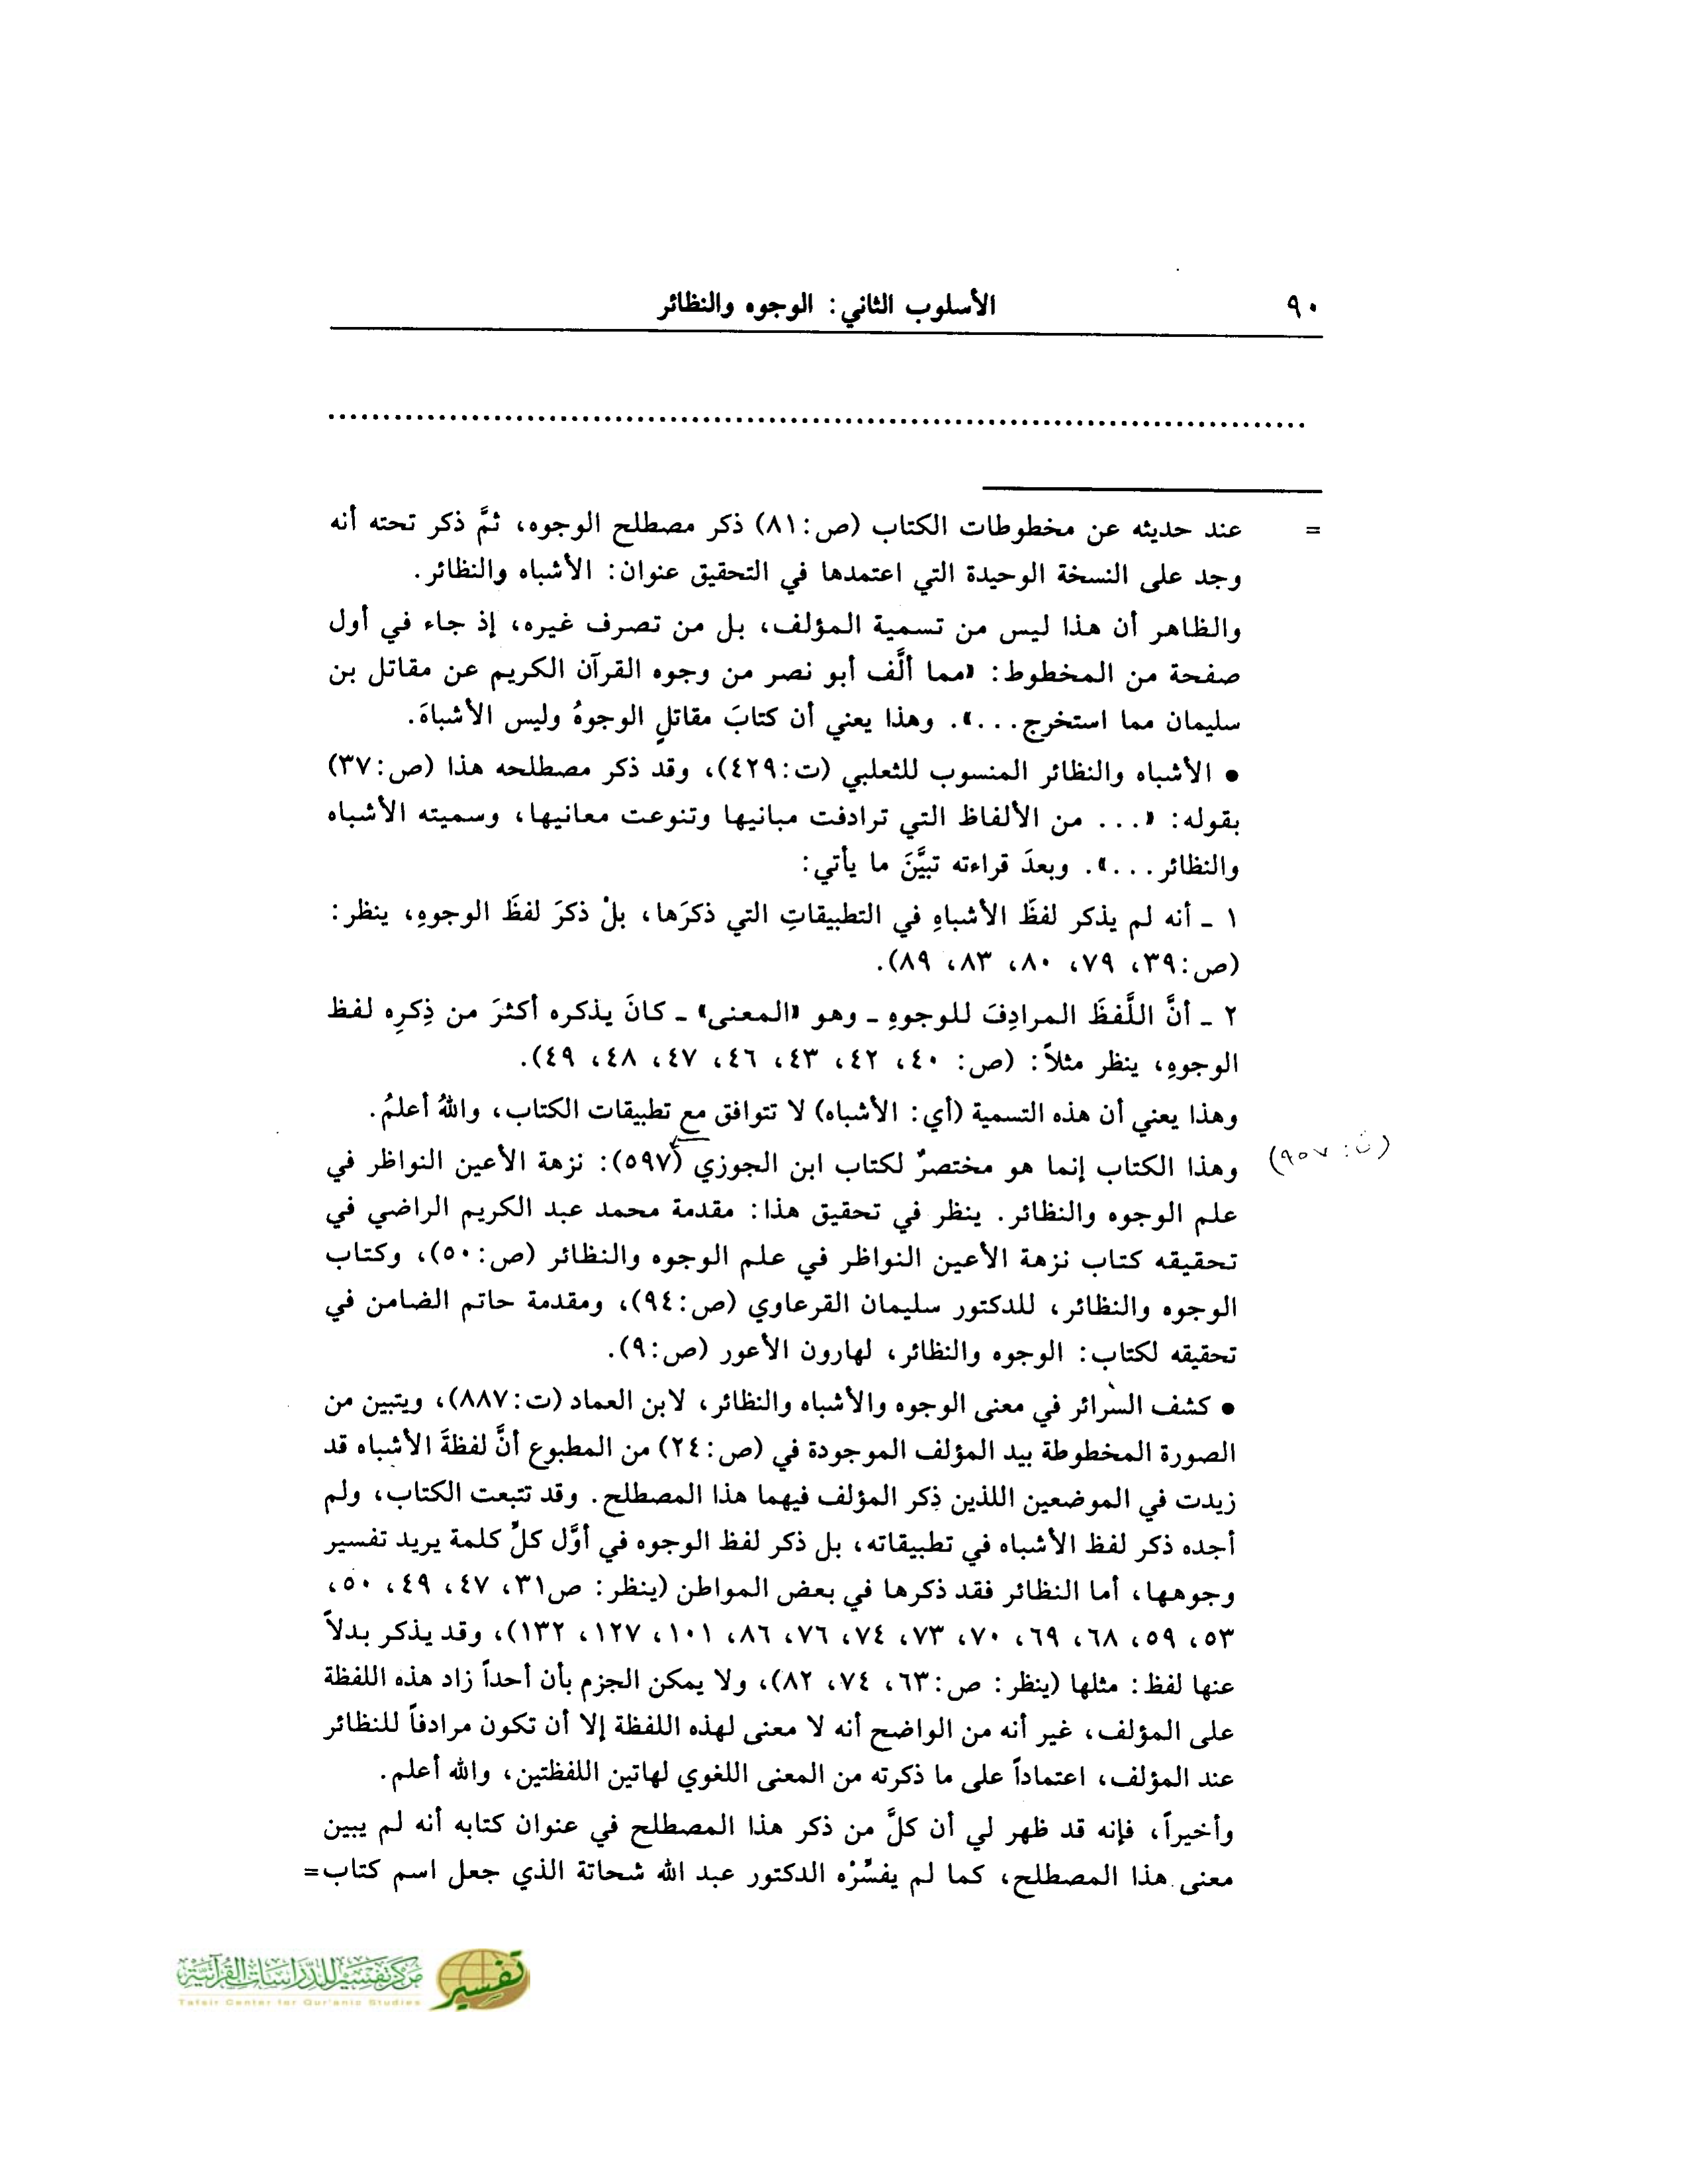 ٩٠ الأسلوب الثاني: الوجوه والنظائر
= عند حديثه عن مخطوطات الكتاب (ص:٨١) ذكر مصطلح الوجوه، ثمَّ ذكر تحته أنه
وجد على النسخة الوحيدة التي اعتمدها في التحقيق عنوان: الأشباه والنظائر.
والظاهر أن هذا ليس من تسمية المؤلف، بل من تصرف غيره، إذ جاء في أول
صفحة من المخطوط: «مما ألَّف أبو نصر من وجوه القرآن الكريم عن مقاتل بن
سليمان مما استخرج...». وهذا يعني أن كتابَ مقاتلٍ الوجوهُ وليس الأشباهَ.
● الأشباه والنظائر المنسوب للثعلبي (ت:٤٢٩)، وقد ذكر مصطلحه هذا (ص:٣٧)
بقوله: «... من الألفاظ التي ترادفت مبانيها وتنوعت معانيها، وسميته الأشباه
والنظائر...». وبعدَ قراءته تبيَّنَ ما يأتي:
١ ـ أنه لم يذكر لفظَ الأشباهِ في التطبيقاتِ التي ذكرَها، بلْ ذكرَ لفظَ الوجوهِ، ينظر:
(ص:٣٩، ٧٩، ٨٠، ٨٣، ٨٩).
٢ ـ أنَّ اللَّفظَ المرادِفَ للوجوهِ ـ وهو «المعنى» ـ كانَ يذكره أكثرَ من ذِكرِه لفظ
الوجوهِ، ينظر مثلاً: (ص: ٤٠، ٤٢، ٤٣، ٤٦، ٤٧، ٤٨، ٤٩).
وهذا يعني أن هذه التسمية (أي: الأشباه) لا تتوافق مع تطبيقات الكتاب، واللهُ أعلمُ.
وهذا الكتاب إنما هو مختصرٌ لكتاب ابن الجوزي (٥٩٧): نزهة الأعين النواظر في
علم الوجوه والنظائر. ينظر في تحقيق هذا: مقدمة محمد عبد الكريم الراضي في
تحقيقه كتاب نزهة الأعين النواظر في علم الوجوه والنظائر (ص:٥٠)، وكتاب
الوجوه والنظائر، للدكتور سليمان القرعاوي (ص:٩٤)، ومقدمة حاتم الضامن في
تحقيقه لكتاب: الوجوه والنظائر، لهارون الأعور (ص:٩).
● كشف السرائر في معنى الوجوه والأشباه والنظائر، لابن العماد (ت:٨٨٧)، ويتبين من
الصورة المخطوطة بيد المؤلف الموجودة في (ص:٢٤) من المطبوع أنَّ لفظةَ الأشباه قد
زيدت في الموضعين اللذين ذِكر المؤلف فيهما هذا المصطلح. وقد تتبعت الكتاب، ولم
أجده ذكر لفظ الأشباه في تطبيقاته، بل ذكر لفظ الوجوه في أوَّل كلِّ كلمة يريد تفسير
وجوهها، أما النظائر فقد ذكرها في بعض المواطن (ينظر: ص٣١، ٤٧، ٤٩، ٥٠،
٥٣، ٥٩، ٦٨، ٦٩، ٧٠، ٧٣، ٧٤، ٧٦، ٨٦، ١٠١، ١٢٧، ١٣٢)، وقد يذكر بدلاً
عنها لفظ: مثلها (ينظر: ص:٦٣، ٧٤، ٨٢)، ولا يمكن الجزم بأن أحداً زاد هذه اللفظة
على المؤلف، غير أنه من الواضح أنه لا معنى لهذه اللفظة إلا أن تكون مرادفاً للنظائر
عند المؤلف، اعتماداً على ما ذكرته من المعنى اللغوي لهاتين اللفظتين، والله أعلم.
وأخيراً، فإنه قد ظهر لي أن كلَّ من ذكر هذا المصطلح في عنوان كتابه أنه لم يبين
معنى هذا المصطلح، كما لم يفسِّرْه الدكتور عبد الله شحاتة الذي جعل اسم كتاب=
تفسير
مركز تفسير للدراسات القرآنية
Tafsir Center for Qur'anic Studies